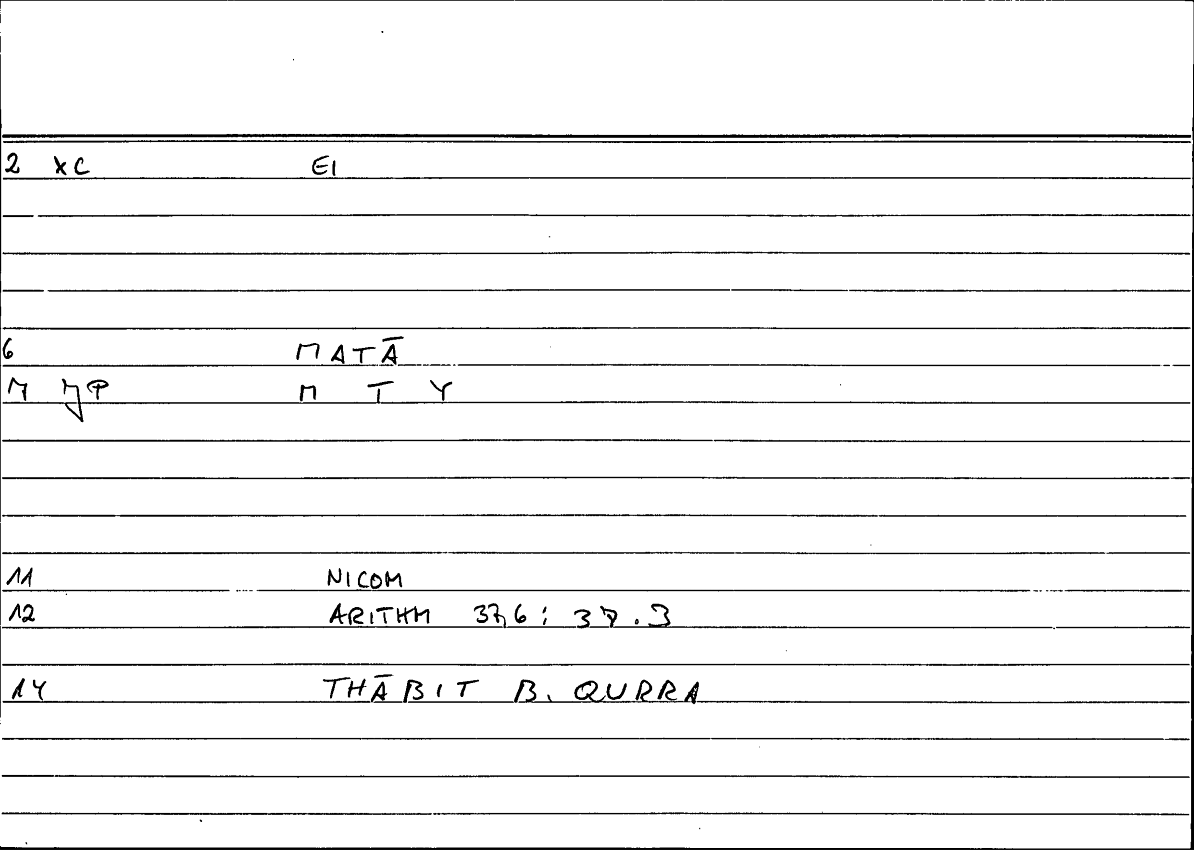 2 XC EI
6 MATĀ
7 JP M T Y
11 NICOM
12 ARITHM 37,6 : 37.3
14 THĀBIT B. QURRA